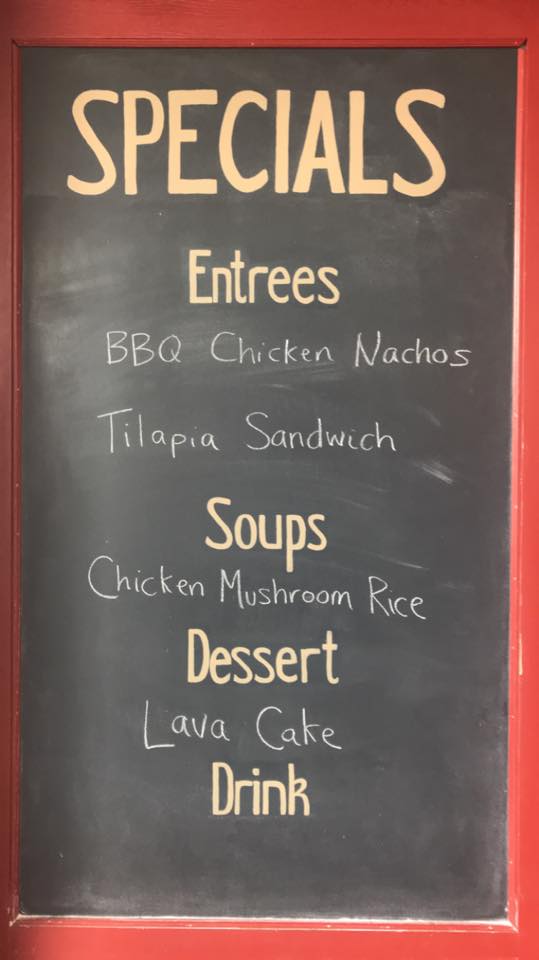 SPECIALS
Entrees
BBQ Chicken Nachos
Tilapia Sandwich
Soups
Chicken Mushroom Rice
Dessert
Lava Cake
Drink